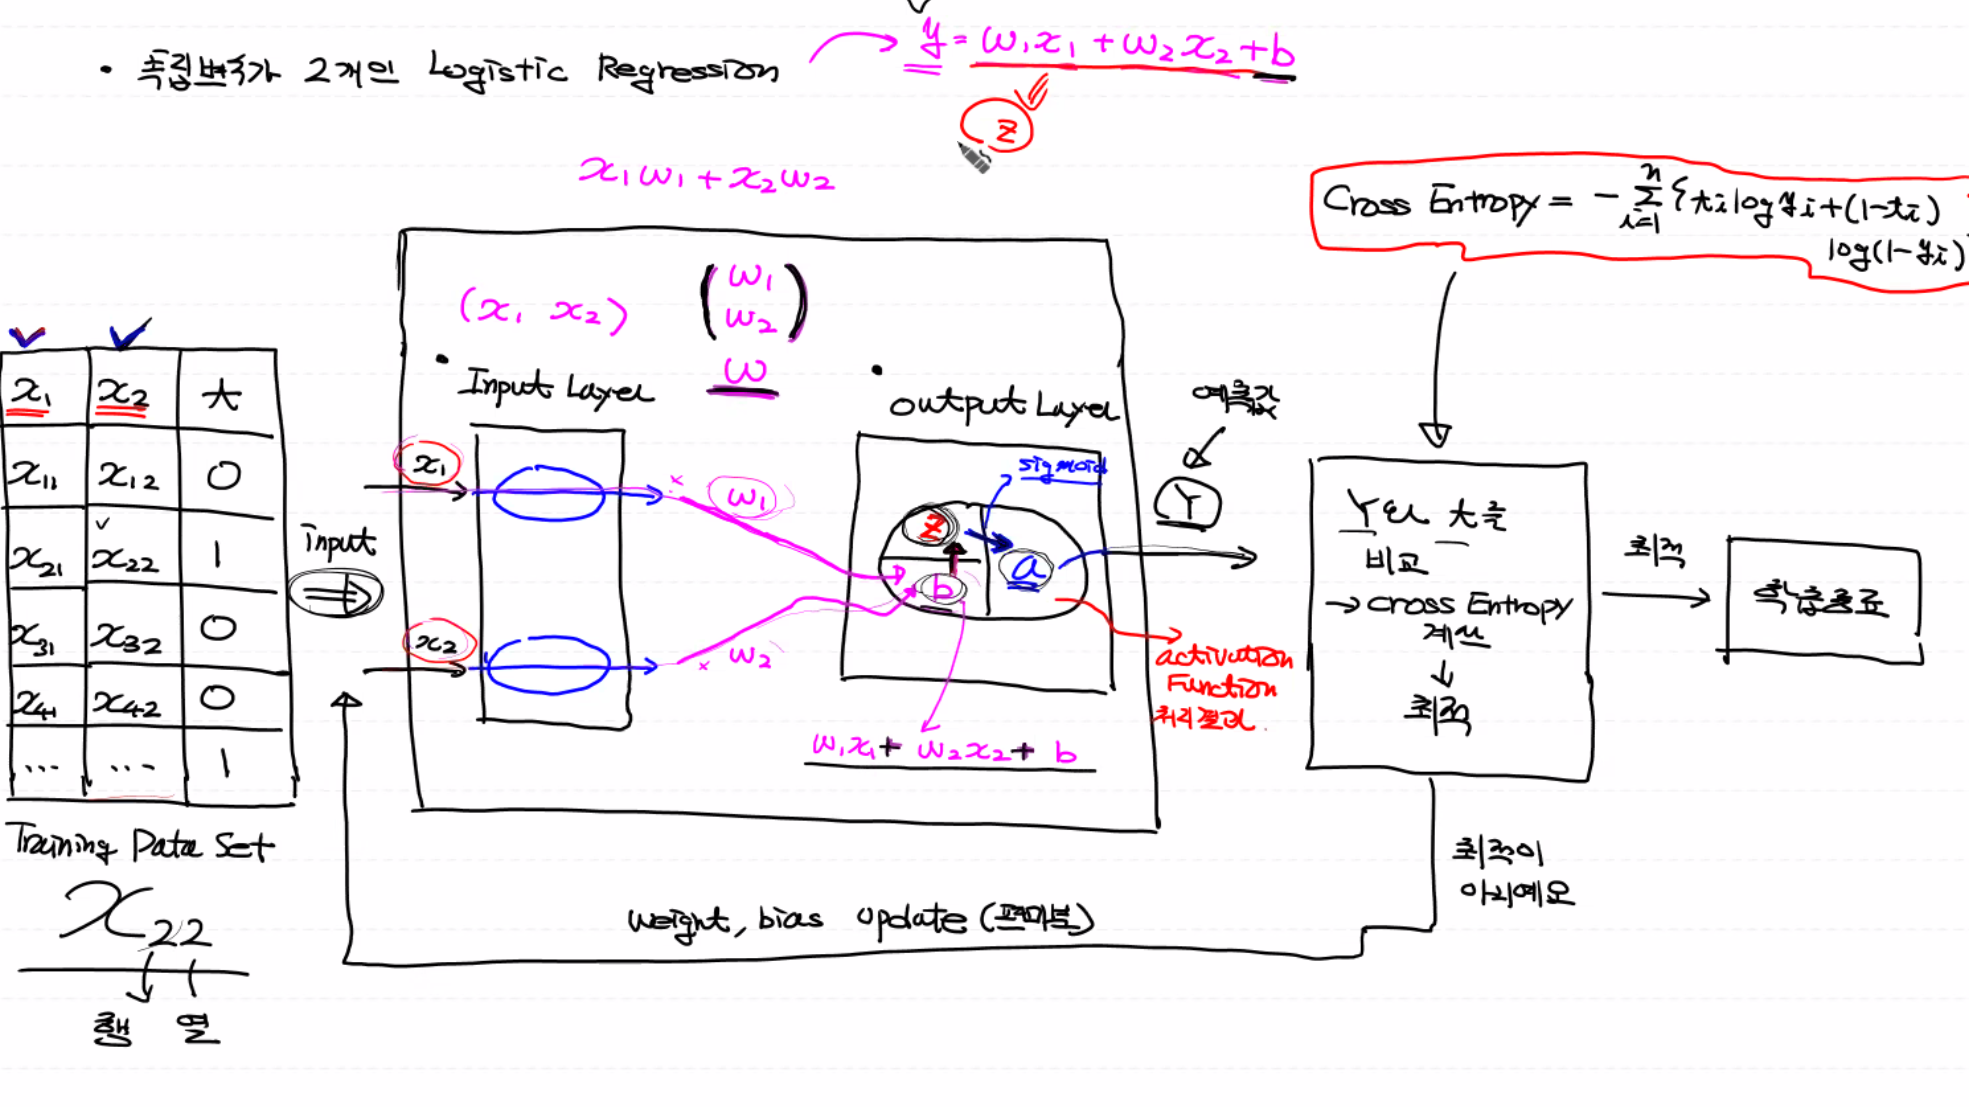 • 독립변수가 2개인 Logistic Regression
y = w₁x₁ + w₂x₂ + b
z
x₁w₁ + x₂w₂
Cross Entropy = - Σ { tᵢ log yᵢ + (1-tᵢ)
n
i=1
log(1-yᵢ)
(x₁ x₂)
w₁
w₂
w
• Input Layer
• output Layer
x₁ x₂ t
x₁₁ x₁₂ 0
x₂₁ x₂₂ 1
x₃₁ x₃₂ 0
x₄₁ x₄₂ 0
... ... 1
Training Data Set
x₂₂
행 열
Input
x₁
x₂
w₁
w₂
z
b
a
sigmoid
w₁x₁ + w₂x₂ + b
activation
Function
처리결과.
예측값
Y
Y와 t를
비교
→ cross Entropy
계산
↓
최적
최적
학습종료
최적이
아니예요
weight, bias update (편미분)